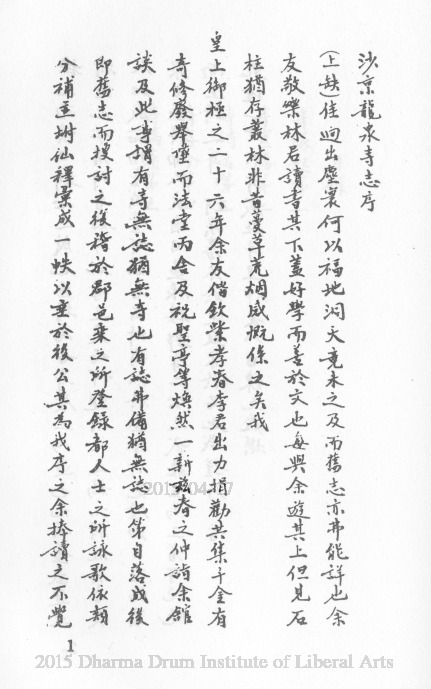 沙京龍泉寺志序
(上缺)佳迥出塵寰何以福地洞天竟未之及而舊志亦弗能詳也余
友敬樂林君讀書其下蓋好學而善於文也每與余遊其上但見石
柱猶存叢林非昔蔓草荒烟感慨係之矣我
皇上御極之二十六年余友偕欽榮孝春李君出力捐勸共集千金有
奇修廢舉墜而法堂兩舍及祝聖亭等煥然一新茲春之仲詣余館
談及此事謂有寺無誌猶無寺也有誌弗備猶無誌也第自落成後
即舊志而搜討之復稽於郡邑乘之所登錄都人士之所詠歌依類
分補並坿仙釋彙成一帙以垂於後公其為我序之余捧讀之不覺
1
2015/04/27
2015 Dharma Drum Institute of Liberal Arts